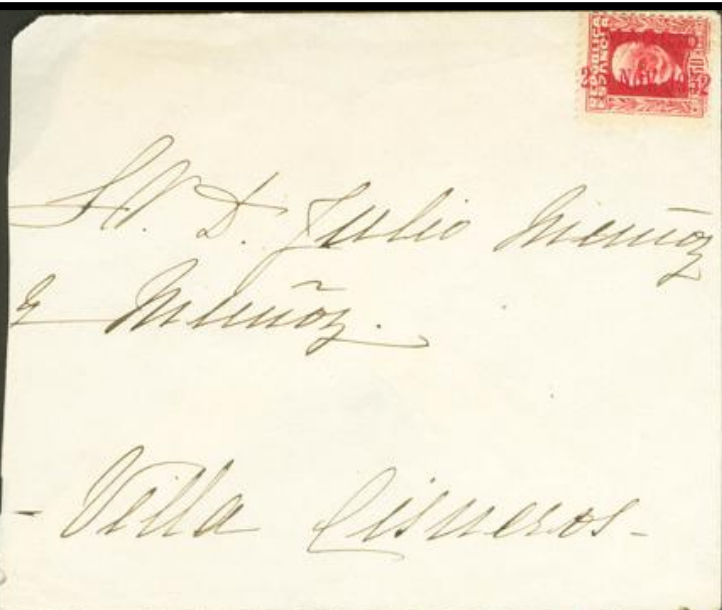 REPUBLICA
ESPAÑOLA
NOV
Sr. D. Julio Muñoz
y Muñoz.
- Villa Cisneros -